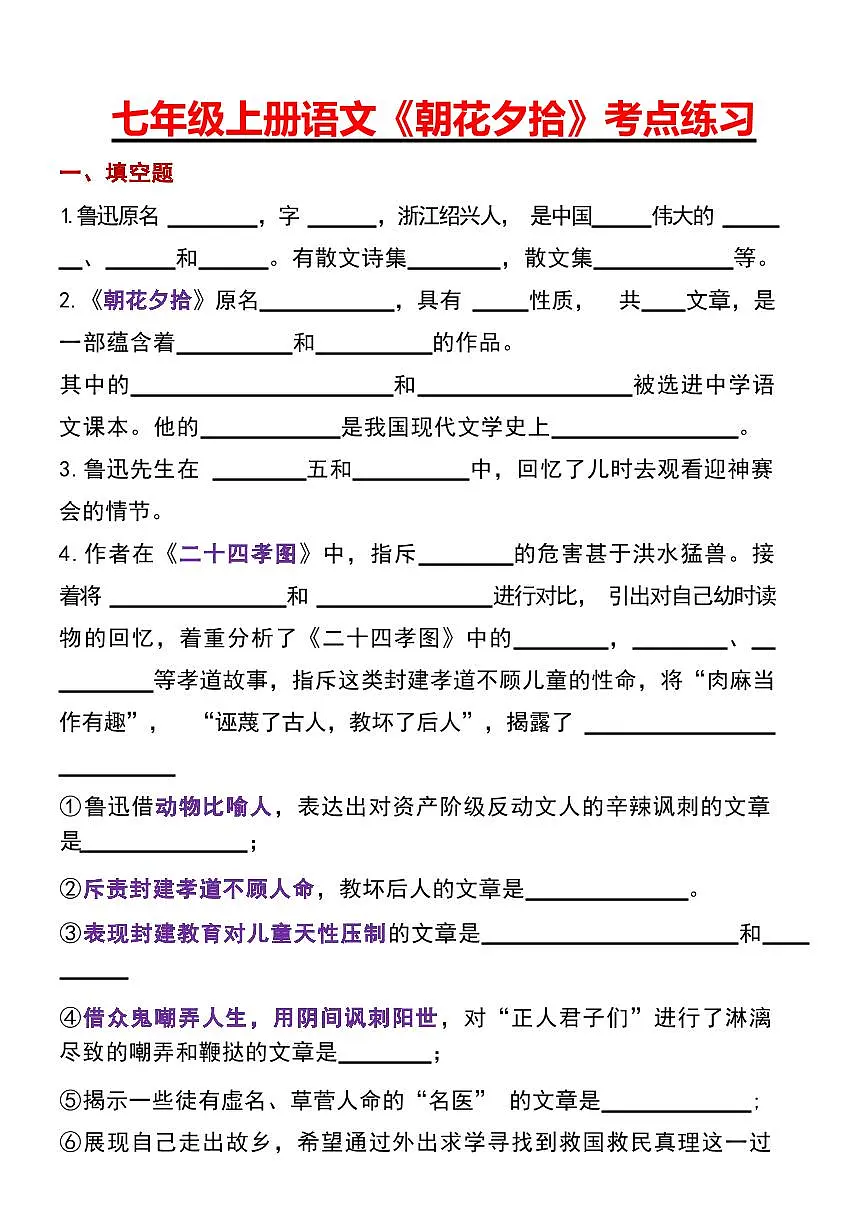 七年级上册语文《朝花夕拾》考点练习
一、填空题
1.鲁迅原名 ________，字 ______，浙江绍兴人， 是中国_____伟大的 _____
__、______和______。有散文诗集________，散文集____________等。
2.《朝花夕拾》原名____________，具有 _____性质， 共____文章，是
一部蕴含着__________和__________的作品。
其中的______________________和__________________被选进中学语
文课本。他的____________是我国现代文学史上________________。
3.鲁迅先生在 ________五和__________中，回忆了儿时去观看迎神赛
会的情节。
4.作者在《二十四孝图》中，指斥________的危害甚于洪水猛兽。接
着将 ________________和 ________________进行对比， 引出对自己幼时读
物的回忆，着重分析了《二十四孝图》中的________，________、__
________等孝道故事，指斥这类封建孝道不顾儿童的性命，将“肉麻当
作有趣”， “诬蔑了古人，教坏了后人”，揭露了 ________________
__________
①鲁迅借动物比喻人，表达出对资产阶级反动文人的辛辣讽刺的文章
是______________；
②斥责封建孝道不顾人命，教坏后人的文章是______________。
③表现封建教育对儿童天性压制的文章是______________________和____
______
④借众鬼嘲弄人生，用阴间讽刺阳世，对“正人君子们”进行了淋漓
尽致的嘲弄和鞭挞的文章是________；
⑤揭示一些徒有虚名、草菅人命的“名医” 的文章是_____________;
⑥展现自己走出故乡，希望通过外出求学寻找到救国救民真理这一过